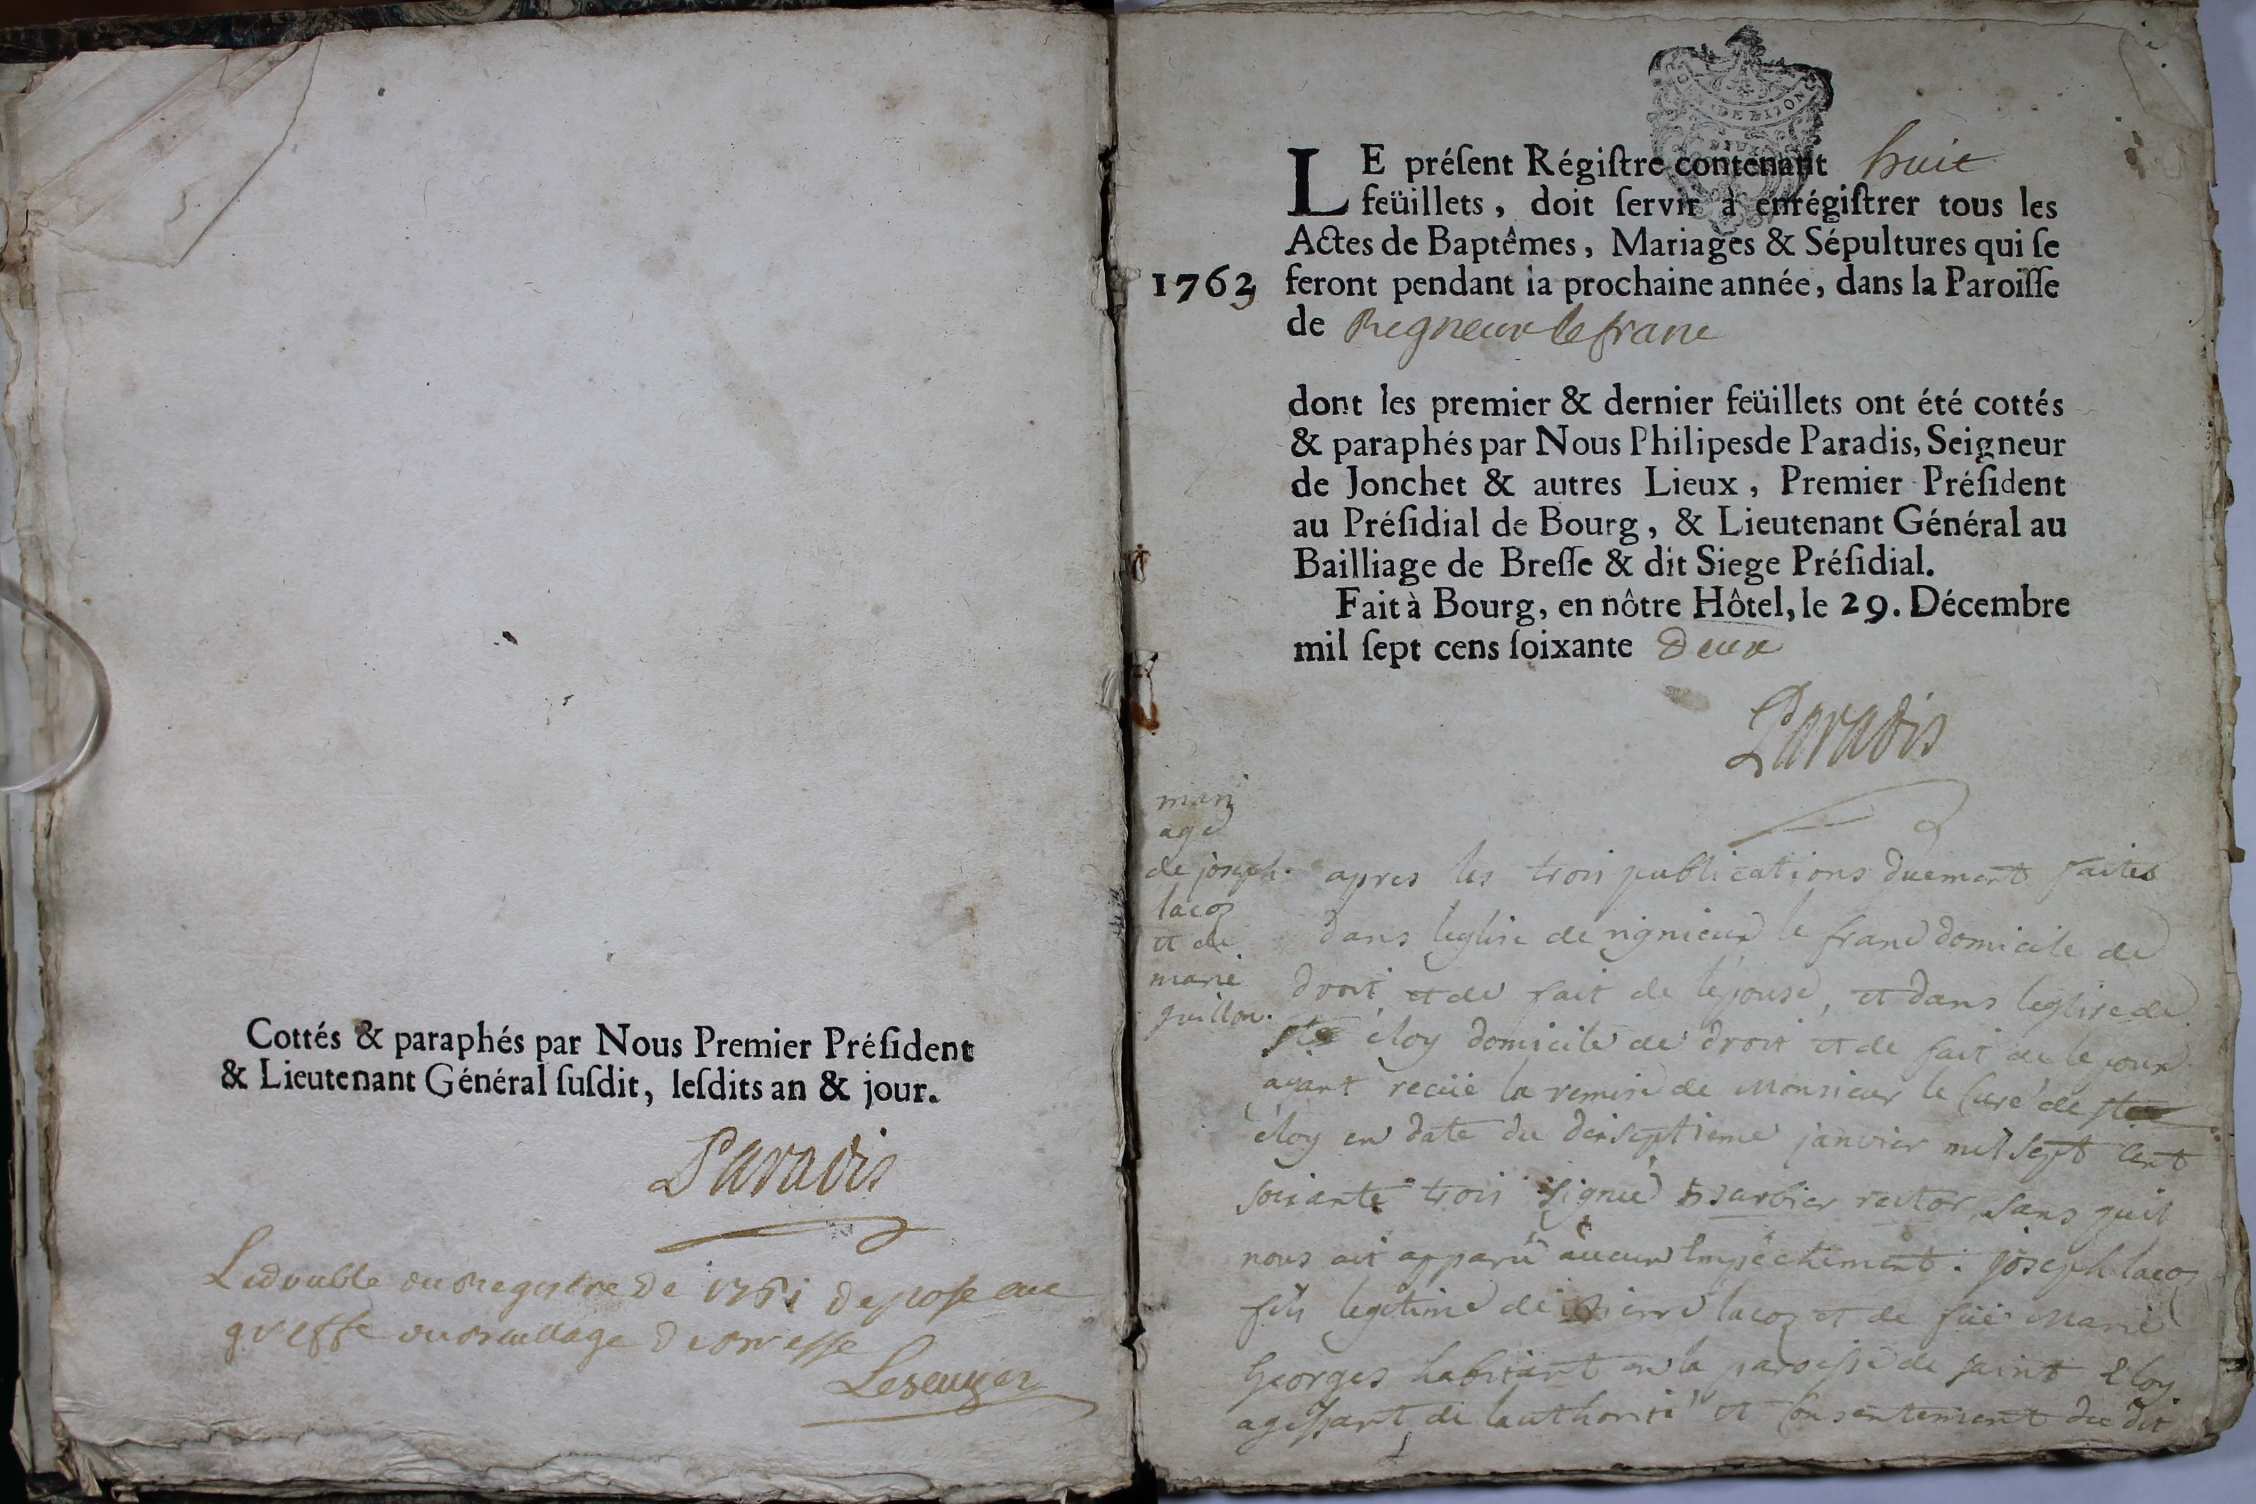 Cottés & paraphés par Nous Premier Préſident
& Lieutenant Général ſuſdit, leſdits an & jour.
Paradis
Le double du Registre de 1761 depose au
greffe du Bailliage de Bresse
LE préſent Régiſtre contenant huit
feüillets, doit ſervir à enrégiſtrer tous les
Actes de Baptêmes, Mariages & Sépultures qui ſe
1763 feront pendant la prochaine année, dans la Paroiſſe
de Regneux le franc
dont les premier & dernier feüillets ont été cottés
& paraphés par Nous Philipes de Paradis, Seigneur
de Jonchet & autres Lieux, Premier Préſident
au Préſidial de Bourg, & Lieutenant Général au
Bailliage de Breſſe & dit Siege Préſidial.
Fait à Bourg, en nôtre Hôtel, le 29. Décembre
mil ſept cens ſoixante deux
Paradis
mari
age
de joseph
lacoz
et de
marie
guillon.
apres les trois publications duement faites
dans leglise de rignieux le franc domicile de
droit et de fait de lépouse, et dans leglise de
éloy domicile de droit et de fait de lepoux
ayant reçüe la remise de Monsieur le Curé de
éloy en date du dixseptieme janvier mil sept cent
soixante trois signée rector, sans quil
nous ait apparu aucun Empéchement. joseph lacoz
fils legitime de pierre lacoz et de füe Marie
Georges habitant en la paroisse de saint Eloy
agissant de lauthorité et consentement du dit